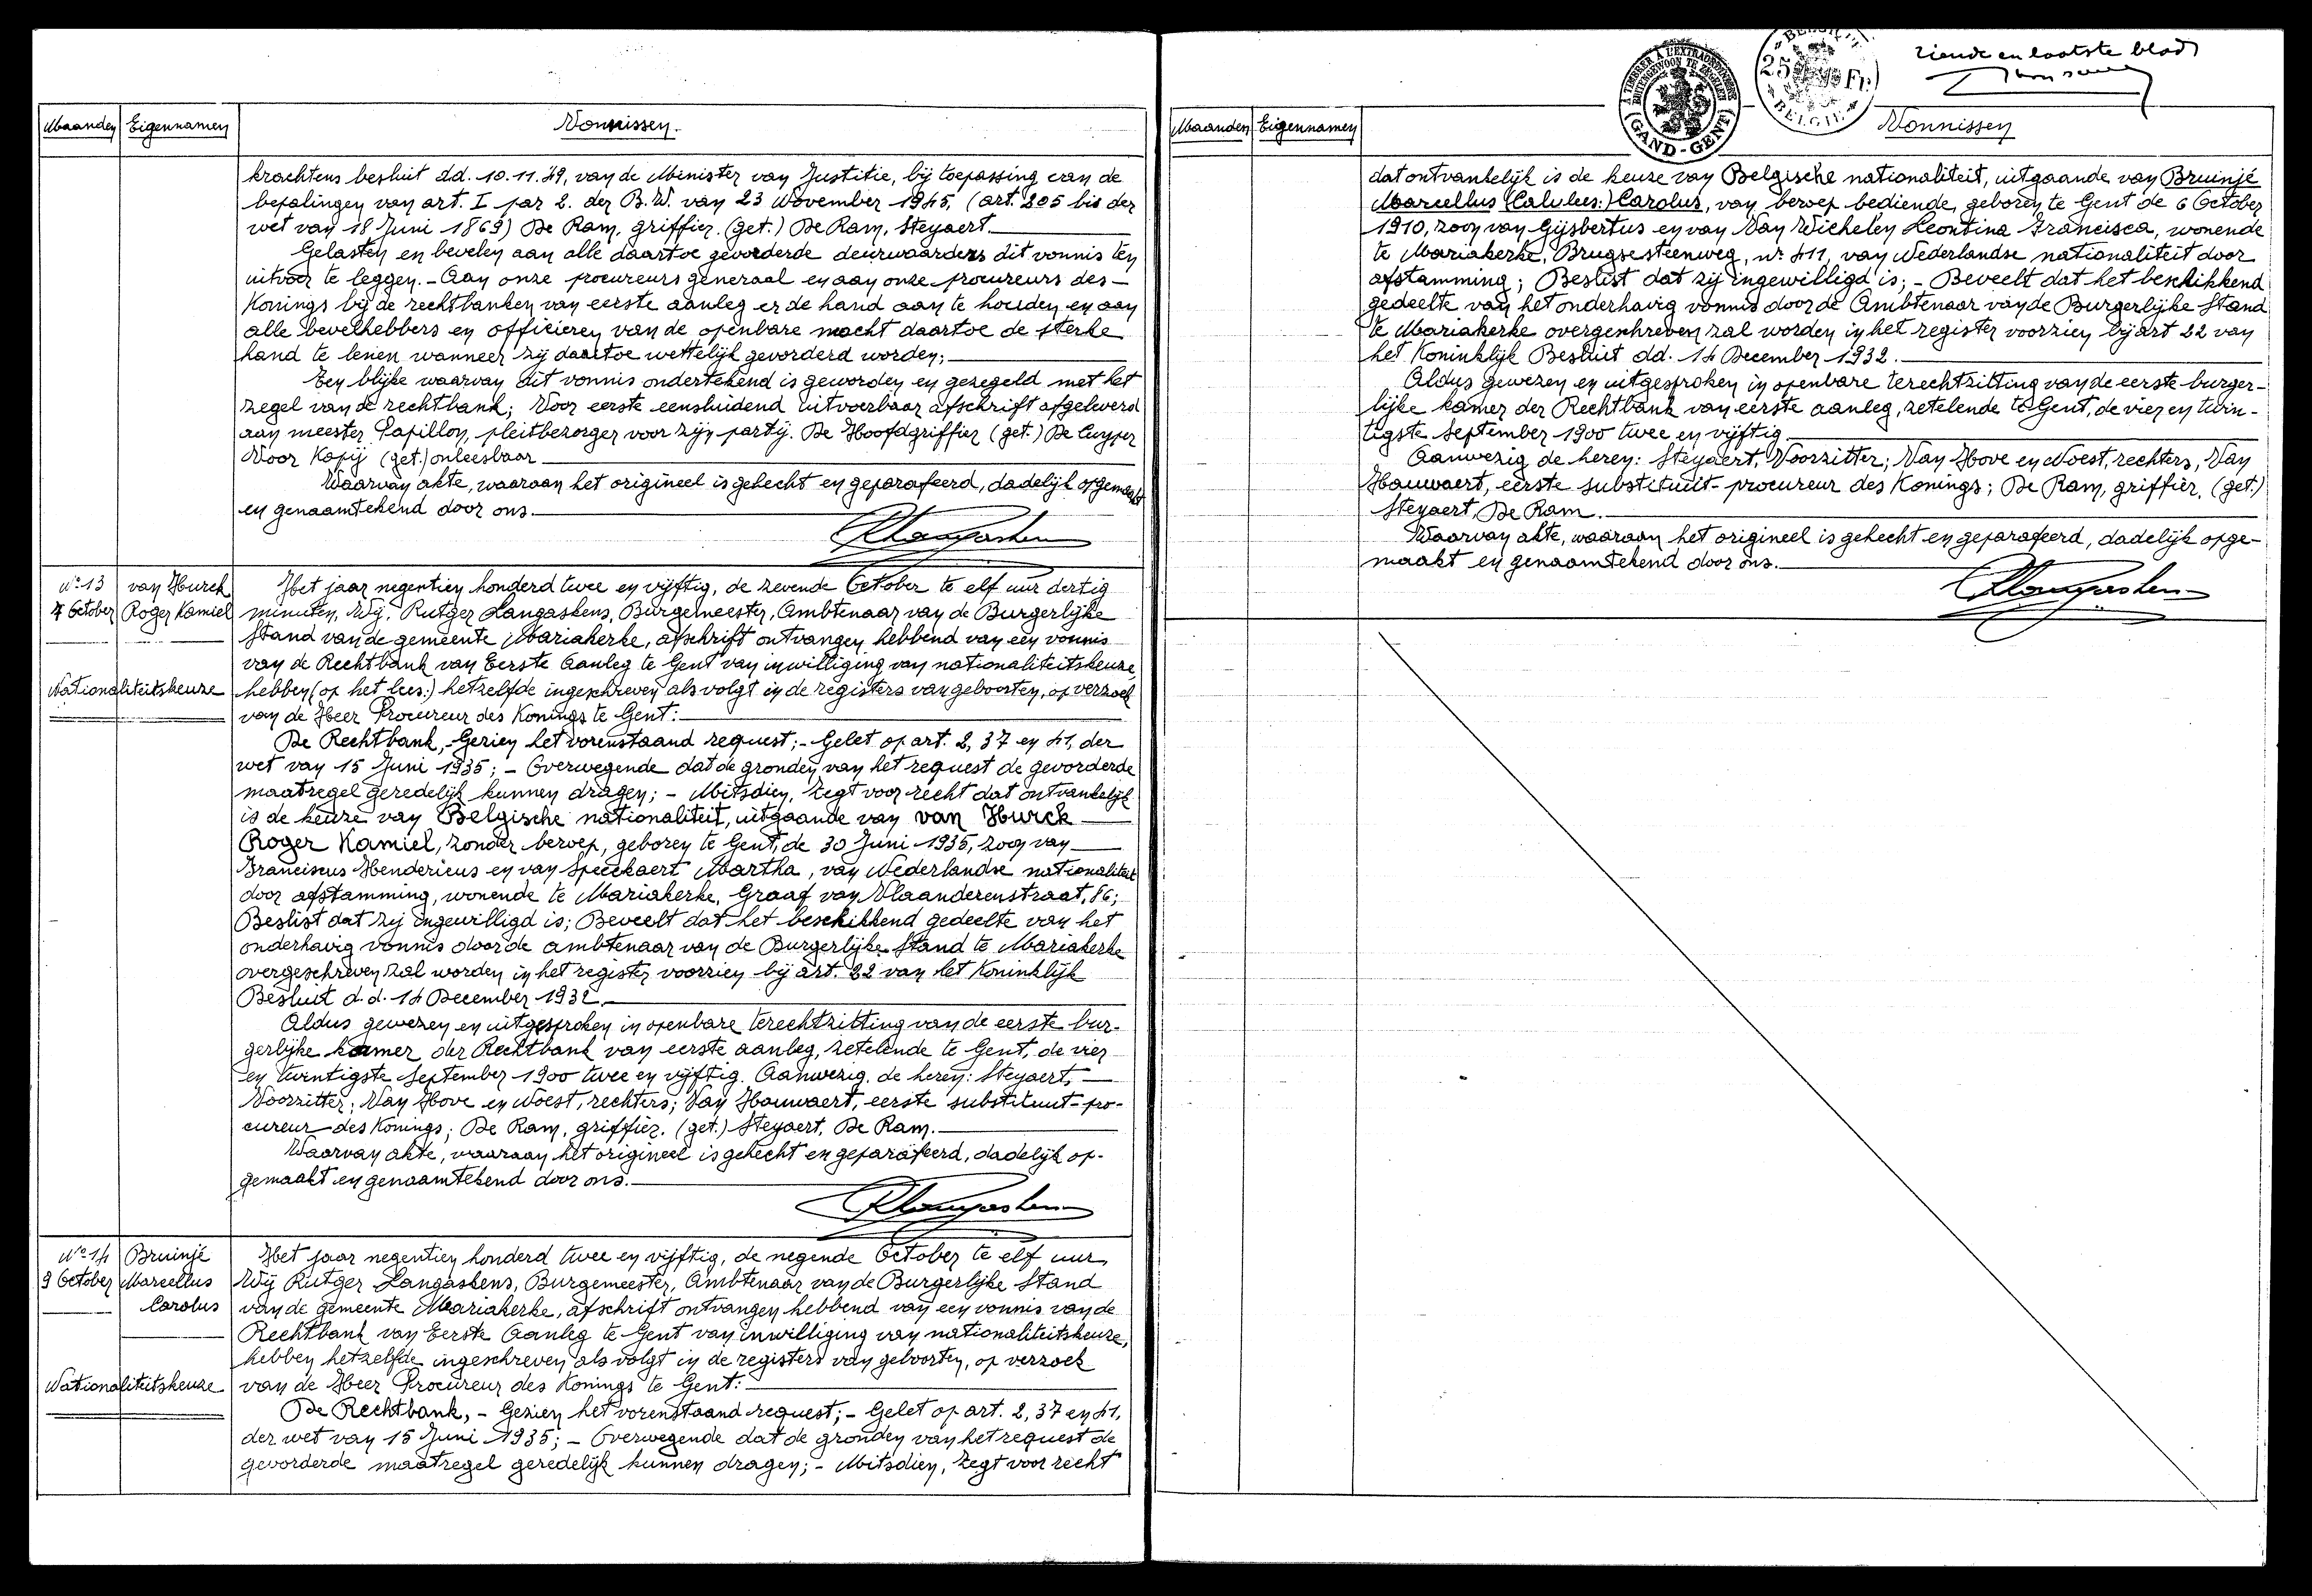 Maanden Eigennamen Vonnissen.
krachtens besluit dd. 10.11.49, van de Minister van Justitie, bij toepassing van de
bepalingen van art. I par 2. der B.W. van 23 November 1945, (art. 205 bis der
wet van 18 Juni 1869) De Ram, griffier. (get.) De Ram, Steyaert.
Gelasten en bevelen aan alle daartoe gevorderde deurwaarders dit vonnis ten
uitvoer te leggen. - Aan onze procureurs generaal en aan onze procureurs des-
Konings bij de rechtbanken van eerste aanleg er de hand aan te houden en aan
alle bevelhebbers en officieren van de openbare macht daartoe de sterke
hand te lenen wanneer zij daartoe wettelijk gevorderd worden;
Ten blijke waarvan dit vonnis ondertekend is geworden en gezegeld met het
zegel van de rechtbank; Voor eerste eensluidend uitvoerbaar afschrift afgeleverd
aan meester Papillon, pleitbezorger voor zijn partij. De Hoofdgriffier (get.) De Cuyper
Voor Kopij (get.) onleesbaar
Waarvan akte, waaraan het origineel is gehecht en geparafeerd, dadelijk opgemaakt
en genaamtekend door ons.
RLangaskens
N° 13 van Hurck
7 October Roger Kamiel
Nationaliteitskeuze
Het jaar negentien honderd twee en vijftig, de zevende October te elf uur dertig
minuten, Wij, Rutger Langaskens, Burgemeester, Ambtenaar van de Burgerlijke
Stand van de gemeente Mariakerke, afschrift ontvangen hebbend van een vonnis
van de Rechtbank van Eerste Aanleg te Gent van inwilliging van nationaliteitskeuze,
hebben (op het lees:) hetzelfde ingeschreven als volgt in de registers van geboorten, op verzoek
van de Heer Procureur des Konings te Gent:
De Rechtbank, - Gezien het vorenstaand request; - Gelet op art. 2, 37 en 41, der
wet van 15 Juni 1935; - Overwegende dat de gronden van het request de gevorderde
maatregel geredelijk kunnen dragen; - Mitsdien, zegt voor recht dat ontvankelijk
is de keuze van Belgische nationaliteit, uitgaande van van Hurck
Roger Kamiel, zonder beroep, geboren te Gent, de 30 Juni 1935, zoon van
Franciscus Hendericus en van Speeckaert Martha, van Nederlandse nationaliteit
door afstamming, wonende te Mariakerke, Graaf van Vlaanderenstraat, 86;
Beslist dat zij ingewilligd is; Beveelt dat het beschikkend gedeelte van het
onderhavig vonnis door de ambtenaar van de Burgerlijke Stand te Mariakerke
overgeschreven zal worden in het register voorzien bij art. 22 van het Koninklijk
Besluit d.d. 14 December 1932.
Aldus gewezen en uitgesproken in openbare terechtzitting van de eerste bur-
gerlijke kamer der Rechtbank van eerste aanleg, zetelende te Gent, de vier
en twintigste September 1900 twee en vijftig. Aanwezig de heren: Steyaert,
Voorzitter; Van Hove en Noest, rechters; Van Hauwaert, eerste substituut-pro-
cureur des Konings; De Ram, griffier. (get.) Steyaert, De Ram.
Waarvan akte, waaraan het origineel is gehecht en geparafeerd, dadelijk op-
gemaakt en genaamtekend door ons.
RLangaskens
N° 14 Bruinjé
9 October Marcellus
Carolus
Nationaliteitskeuze
Het jaar negentien honderd twee en vijftig, de negende October te elf uur,
Wij Rutger Langaskens, Burgemeester, Ambtenaar van de Burgerlijke Stand
van de gemeente Mariakerke, afschrift ontvangen hebbend van een vonnis van de
Rechtbank van Eerste Aanleg te Gent van inwilliging van nationaliteitskeuze,
hebben hetzelfde ingeschreven als volgt in de registers van geboorten, op verzoek
van de Heer Procureur des Konings te Gent:
De Rechtbank, - Gezien het vorenstaand request; - Gelet op art. 2, 37 en 41,
der wet van 15 Juni 1935; - Overwegende dat de gronden van het request de
gevorderde maatregel geredelijk kunnen dragen; - Mitsdien, zegt voor recht
À TIMBRER À L'EXTRAORDINAIRE
BUITENGEWOON TE ZEGELEN
(GAND-GENT)
25 Fr.
BELGIE
tiende en laatste blad
Maanden Eigennamen Vonnissen
dat ontvankelijk is de keuze van Belgische nationaliteit, uitgaande van Bruinjé
Marcellus (Calulus:) Carolus, van beroep bediende, geboren te Gent de 6 October
1910, zoon van Gijsbertus en van Van Wichelen Leontina Francisca, wonende
te Mariakerke, Brugsesteenweg, nr 411, van Nederlandse nationaliteit door
afstamming; Beslist dat zij ingewilligd is; - Beveelt dat het beschikkend
gedeelte van het onderhavig vonnis door de Ambtenaar van de Burgerlijke Stand
te Mariakerke overgeschreven zal worden in het register voorzien bij art 22 van
het Koninklijk Besluit dd. 14 December 1932.
Aldus gewezen en uitgesproken in openbare terechtzitting van de eerste burger-
lijke kamer der Rechtbank van eerste aanleg, zetelende te Gent, de vier en twin-
tigste September 1900 twee en vijftig
Aanwezig de heren: Steyaert, Voorzitter; Van Hove en Noest, rechters, Van
Hauwaert, eerste substituut-procureur des Konings; De Ram, griffier. (get.)
Steyaert, De Ram.
Waarvan akte, waaraan het origineel is gehecht en geparafeerd, dadelijk opge-
maakt en genaamtekend door ons.
RLangaskens